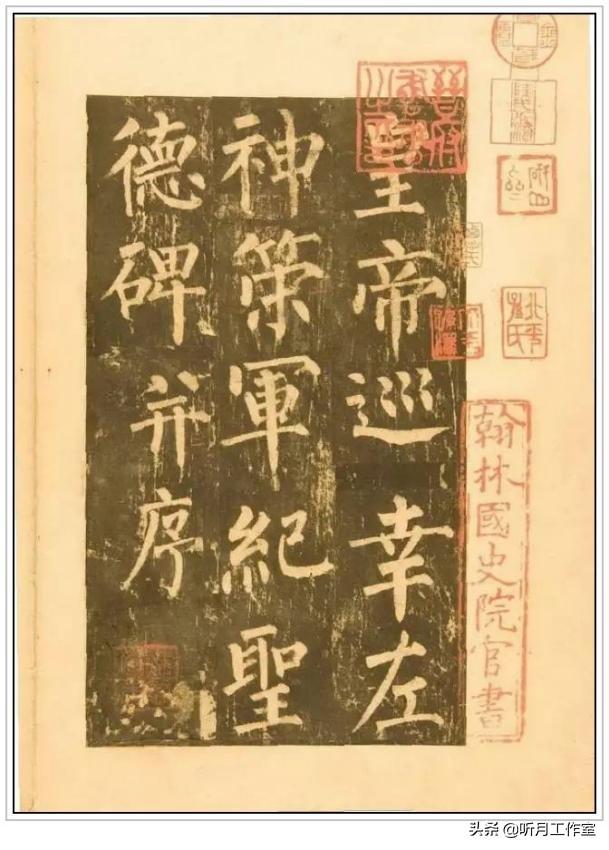 皇帝巡幸左
神策軍紀聖
德碑并序
翰林國史院官書
北平
孫氏
头条 @听月工作室